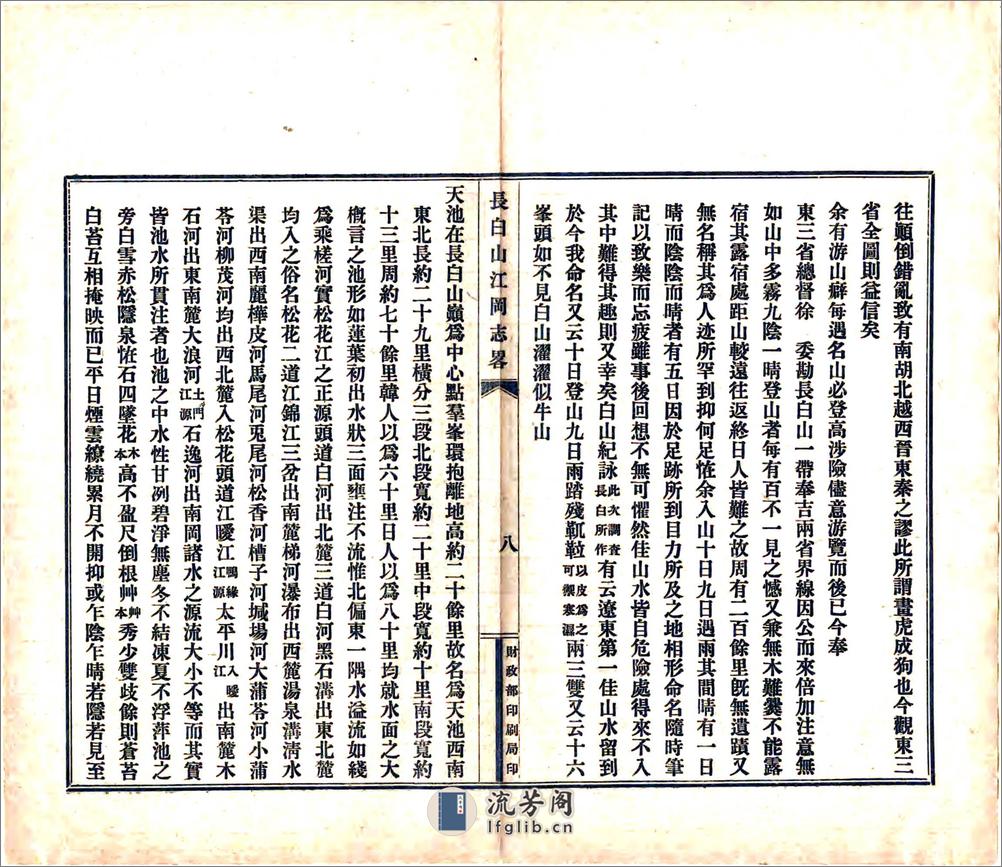 往顚倒錯亂致有南胡北越西晉東秦之謬此所謂畫虎成狗也今觀東三
省全圖則益信矣
余有游山癖每遇名山必登高涉險儘意游覽而後已今奉
東三省總督徐　委勘長白山一帶奉吉兩省界線因公而來倍加注意無
如山中多霧九陰一晴登山者每有百不一見之憾又兼無木難爨不能露
宿其露宿處距山較遠往返終日人皆難之故周有二百餘里旣無遺蹟又
無名稱其爲人迹所罕到抑何足恠余入山十日九日遇雨其間晴有一日
晴而陰陰而晴者有五日因於足跡所到目力所及之地相形命名隨時筆
記以致樂而忘疲雖事後回想不無可懼然佳山水皆自危險處得來不入
其中難得其趣則又幸矣白山紀詠此次調查長白所作有云遼東第一佳山水留到
於今我命名又云十日登山九日雨踏殘靰鞡以皮爲之可禦寒濕兩三雙又云十六
峯頭如不見白山濯濯似牛山
長白山江岡志畧
八
財政部印刷局印
天池在長白山巔爲中心點羣峯環抱離地高約二十餘里故名爲天池西南
東北長約二十九里橫分三段北段寬約二十里中段寬約十里南段寬約
十三里周約七十餘里韓人以爲六十里日人以爲八十里均就水面之大
概言之池形如蓮葉初出水狀三面壅注不流惟北偏東一隅水溢流如綫
爲乘槎河實松花江之正源頭道白河出北麓三道白河黑石溝出東北麓
均入之俗名松花二道江錦江三岔出南麓梯河瀑布出西麓湯泉溝清水
渠出西南麗樺皮河馬尾河兎尾河松香河槽子河堿場河大蒲苓河小蒲
苓河柳茂河均出西北麓入松花頭道江曖江鴨綠江源太平川入曖江出南麓木
石河出東南麓大浪河土門江源石逸河出南岡諸水之源流大小不等而其實
皆池水所貫注者也池之中水性甘冽碧淨無塵冬不結凍夏不浮萍池之
旁白雪赤松隱泉恠石四墜花木本高不盈尺倒根艸艸本秀少雙歧餘則蒼苔
白苔互相掩映而已平日煙雲繚繞累月不開抑或乍陰乍晴若隱若見至
流芳阁
lfglib.cn